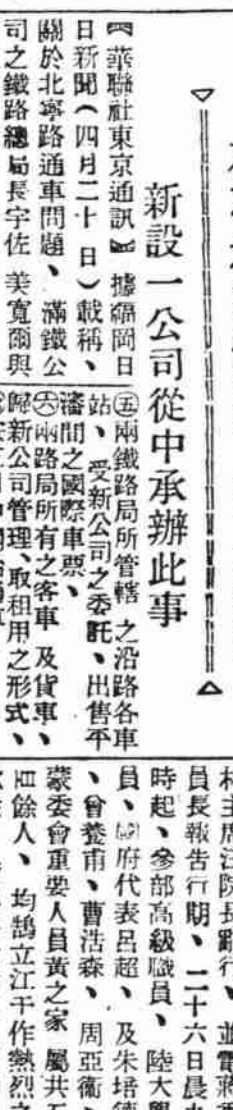 新設一公司從中承辦此事
【華聯社東京通訊】據福岡日
日新聞（四月二十日）載稱、
關於北寧路通車問題、滿鐵公
司之鐵路總局長宇佐美寬爾與
㊄兩鐵路局所管轄之沿路各車
站、受新公司之委託、出售平
瀋間之國際車票、
㊅兩路局所有之客車及貨車、
歸新公司管理、取租用之形式、
員長報告行期、二十六日晨
時起、參部高級職員、陸大
員、國府代表呂超、及朱培德
、曾養甫、曹浩森、周亞衞、
蒙委會重要人員黃之家屬共
餘人、均鵠立江干作熱烈之